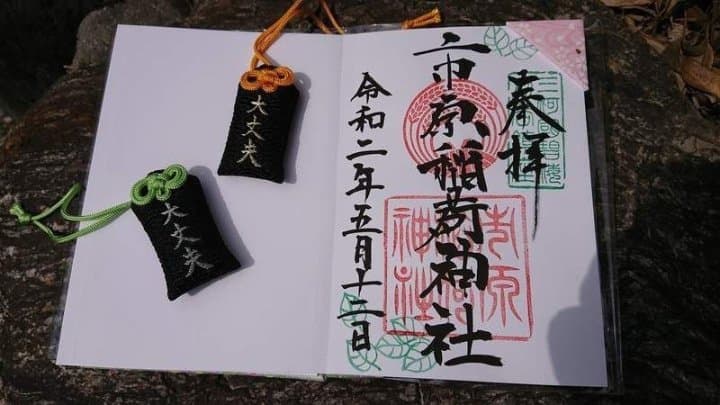 奉拝
市原稲荷神社
市原
稲荷
神社
令和二年五月十二日
大丈夫
大丈夫